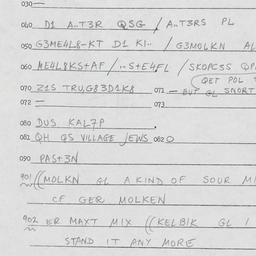 030 —
040 D1 A..T3R QSG / A..T3RS PL
050 G3ME4L8-KT D1 KI.. / G3MOLKN AL
060 ME4L8KS+AF / ..S+E4FL / SKOPCSS
(QET POL
070 Z1S TRUG83D1K8 071 — BUT GL SNORT
072 = 073
080 DUS KAL7P
081 QH QS VILLAGE JEWS 082 0
090 PAS+3N
901 ((MOLKN GL A KIND OF SOUR MI
CF GER MOLKEN
902 ER MAXT MIX ((KELBIK GL I
STAND IT ANY MORE